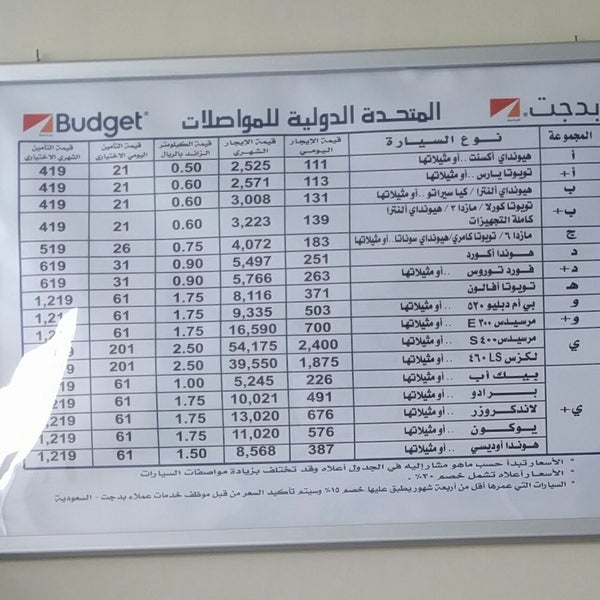 بدجت Budget
المتحدة الدولية للمواصلات
المجموعة نوع السيارة قيمة الإيجار اليومي قيمة الإيجار الشهري قيمة الكيلومتر الزائد بالريال قيمة التأمين اليومي الاختياري قيمة التأمين الشهري الاختياري
أ هيونداي أكسنت ..أو مثيلاتها 111 2,525 0.50 21 419
أ+ تويوتا يارس ..أو مثيلاتها 113 2,571 0.60 21 419
ب هيونداي ألنترا / كيا سيراتو ..أو مثيلاتها 131 3,008 0.60 21 419
ب+ تويوتا كورولا / مازدا ٣ / هيونداي ألنترا كاملة التجهيزات 139 3,223 0.60 21 419
ج مازدا ٦ / تويوتا كامري/هيونداي سوناتا ..أو مثيلاتها 183 4,072 0.75 26 519
د هوندا أكورد 251 5,497 0.90 31 619
د+ فورد توروس ..أو مثيلاتها 263 5,766 0.90 31 619
هـ تويوتا أفالون 371 8,116 1.75 61 1,219
و بي أم دبليو ٥٢٠ ..أو مثيلاتها 503 9,335 1.75 61
و+ مرسيدس E ٣٠٠ ..أو مثيلاتها 700 16,590 1.75 61
ي مرسيدس S ٤٠٠ ..أو مثيلاتها 2,400 54,175 2.50 201
لكزس LS ٤٦٠ ..أو مثيلاتها 1,875 39,550 2.50 201
ي+ بيك أب ..أو مثيلاتها 226 5,245 1.00 61
برادو ..أو مثيلاتها 491 10,021 1.75 61
لاندكروزر ..أو مثيلاتها 676 13,020 1.75 61
يوكون ..أو مثيلاتها 576 11,020 1.75 61 1,219
هوندا أوديسي ..أو مثيلاتها 387 8,568 1.50 61 1,219
* الأسعار تبدأ حسب ماهو مشار إليه في الجدول أعلاه وقد تختلف بزيادة مواصفات السيارات
* الأسعار أعلاه تشمل خصم ٣٠٪
* السيارات التي عمرها أقل من أربعة شهور يطبق عليها خصم ١٥٪ وسيتم تأكيد السعر من قبل موظف خدمات عملاء بدجت - السعودية